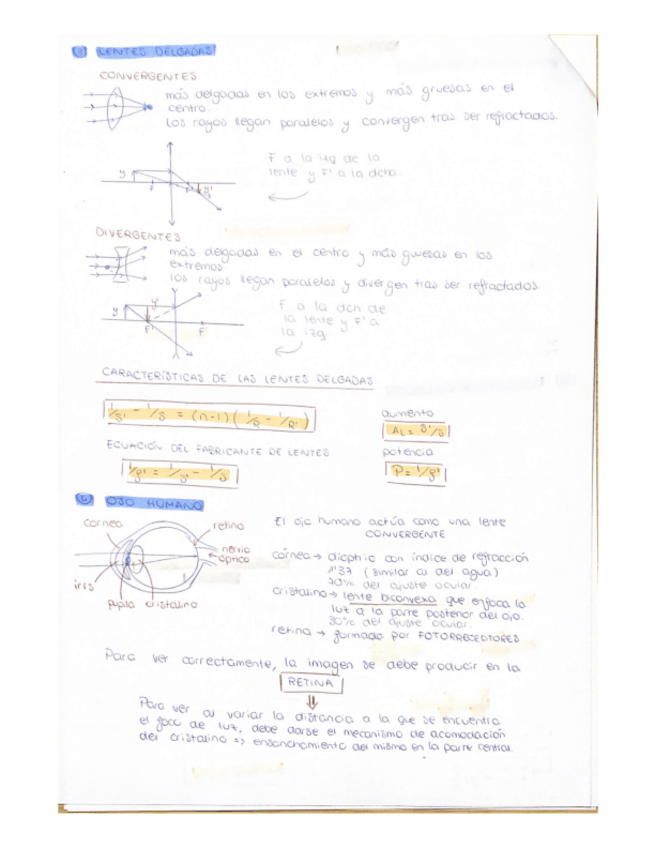 LENTES DELGADAS
CONVERGENTES
más delgadas en los extremos y más gruesas en el
centro.
los rayos llegan paralelos y convergen tras ser refractados.
F a la izq de la
lente y F' a la dcha.
y
F
y'
DIVERGENTES
más delgadas en el centro y más gruesas en los
extremos.
los rayos llegan paralelos y divergen tras ser refractados
F a la dch de
la lente y F' a
la izq
y
y'
F'
F
CARACTERÍSTICAS DE LAS LENTES DELGADAS
1/s' - 1/s = (n-1) (1/R - 1/R')
aumento
AL = s'/s
ECUACIÓN DEL FABRICANTE DE LENTES
potencia
1/f' = 1/s' - 1/s
P = 1/f'
6 OJO HUMANO
cornea
retina
nervio
óptico
iris
pupila cristalino
El ojo humano actúa como una lente
CONVERGENTE
córnea → dioptrio con índice de refracción
1'37 (similar al del agua)
70% del ajuste ocular
cristalino → lente biconvexa que enfoca la
luz a la parte posterior del ojo.
30% del ajuste ocular.
retina → formado por FOTORRECEPTORES
Para ver correctamente, la imagen se debe producir en la
RETINA
Para ver al variar la distancia a la que se encuentra
el foco de luz, debe darse el mecanismo de acomodación
del cristalino => ensanchamiento del mismo en la parte central.